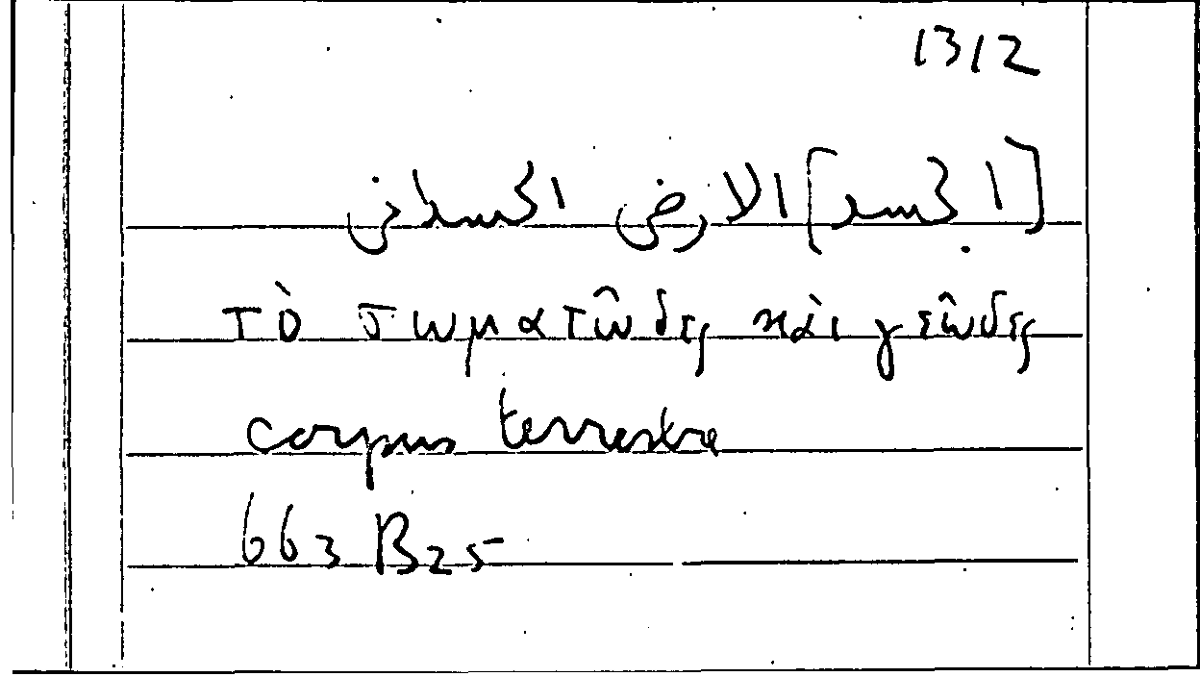 1312
[الجسد] الارض الجسدانى
τὸ σωματῶδες καὶ γεῶδες
corpus terrestre
663 B25